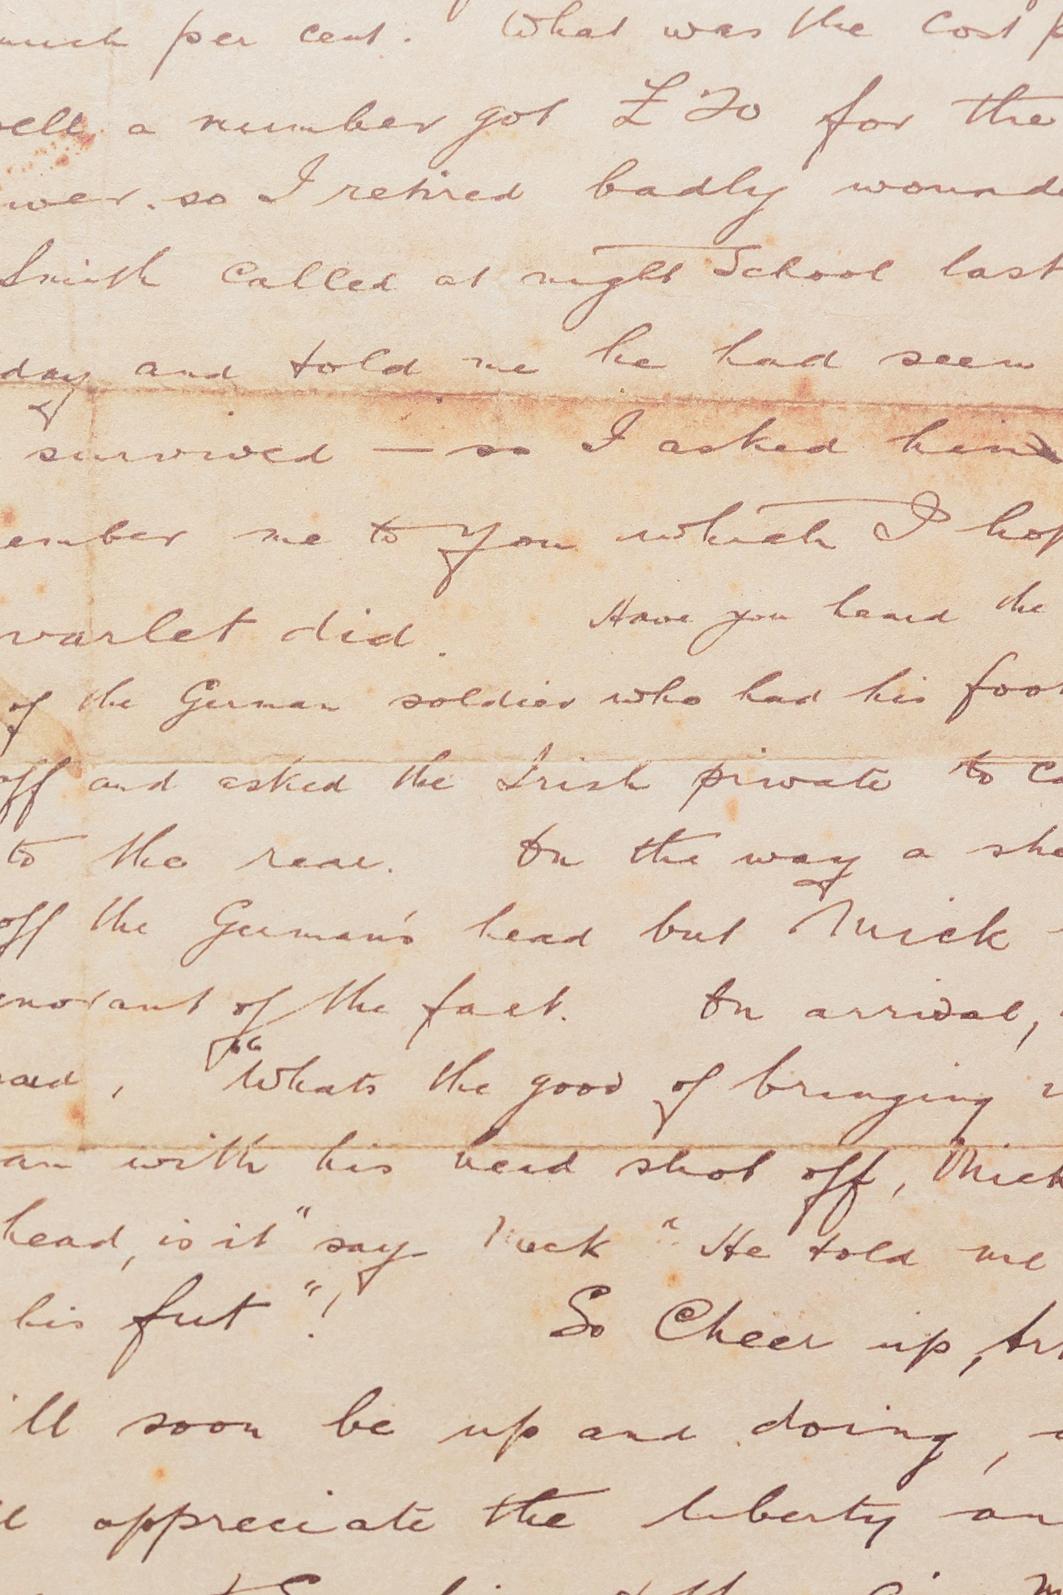 much per cent. What was the cost p
sell a number got £20 for the
wer. so I retired badly wounde
Smith called at night School last
day and told me he had seen
survived — so I asked him
ember me to you which I hop
varlet did. Have you heard the
of the German soldier who had his foot
off and asked the Irish private to ca
to the rear. On the way a she
off the German's head but Mick
gnorant of the fact. On arrival,
aid, "Whats the good of bringing
an with his head shot off, Mick
head, is it" say Mick "He told me
his fut"! So Cheer up, Ar
'll soon be up and doing,
appreciate the liberty an